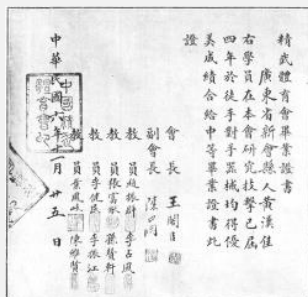 精武體育會畢業證書
廣東省新會縣人黃漢佳
右學員在本會研究技擊已屆
四年於徒手對手器械均得優
美成績合給中等畢業證書此
證
會長 王閣臣
副會長 陳
教員 姚蟾 李占風
教員 張富猷 孫贊軒
教員 李健民 李振江
教員 葉鳳岐 陳維賢
中華民國六年一月廿五日